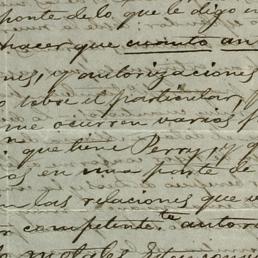 ponte de lo que le digo en
hacer que cuanto an
nes, y autorizaciones
sobre el particular,
me ocurren varios p
que tiene Perry, y q
es en una parte de
las relaciones que
competente autori